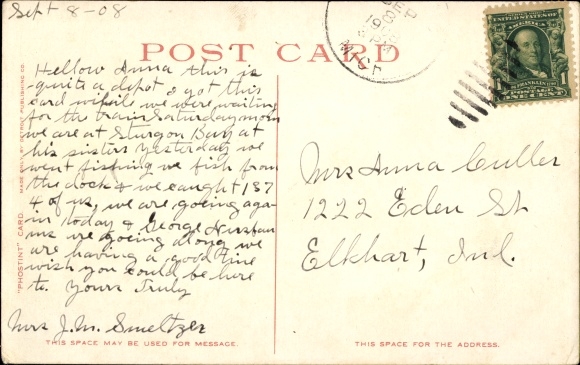 Sept 8-08
POST CARD
Hellow Anna this is
quite a depot & got this
card while we were waiting
for the train Saturday morn
we are at Sturgon Bay at
his sisters yesterday we
went fishing we fish from
the dock & we caught 187
4 of us, we are going aga-
in today & George
we going along we
are having a good time
wish you could be here
to. Yours Truly
Mrs J.M. Smeltzer
THIS SPACE MAY BE USED FOR MESSAGE.
"PHOSTINT" CARD. MADE ONLY BY DETROIT PUBLISHING CO.
MICH
UNITED STATES OF AMERICA
FRANKLIN
1 1
POSTAGE
ONE CENT
Mrs Anna Culler
1222 Eden St
Elkhart, Ind.
THIS SPACE FOR THE ADDRESS.